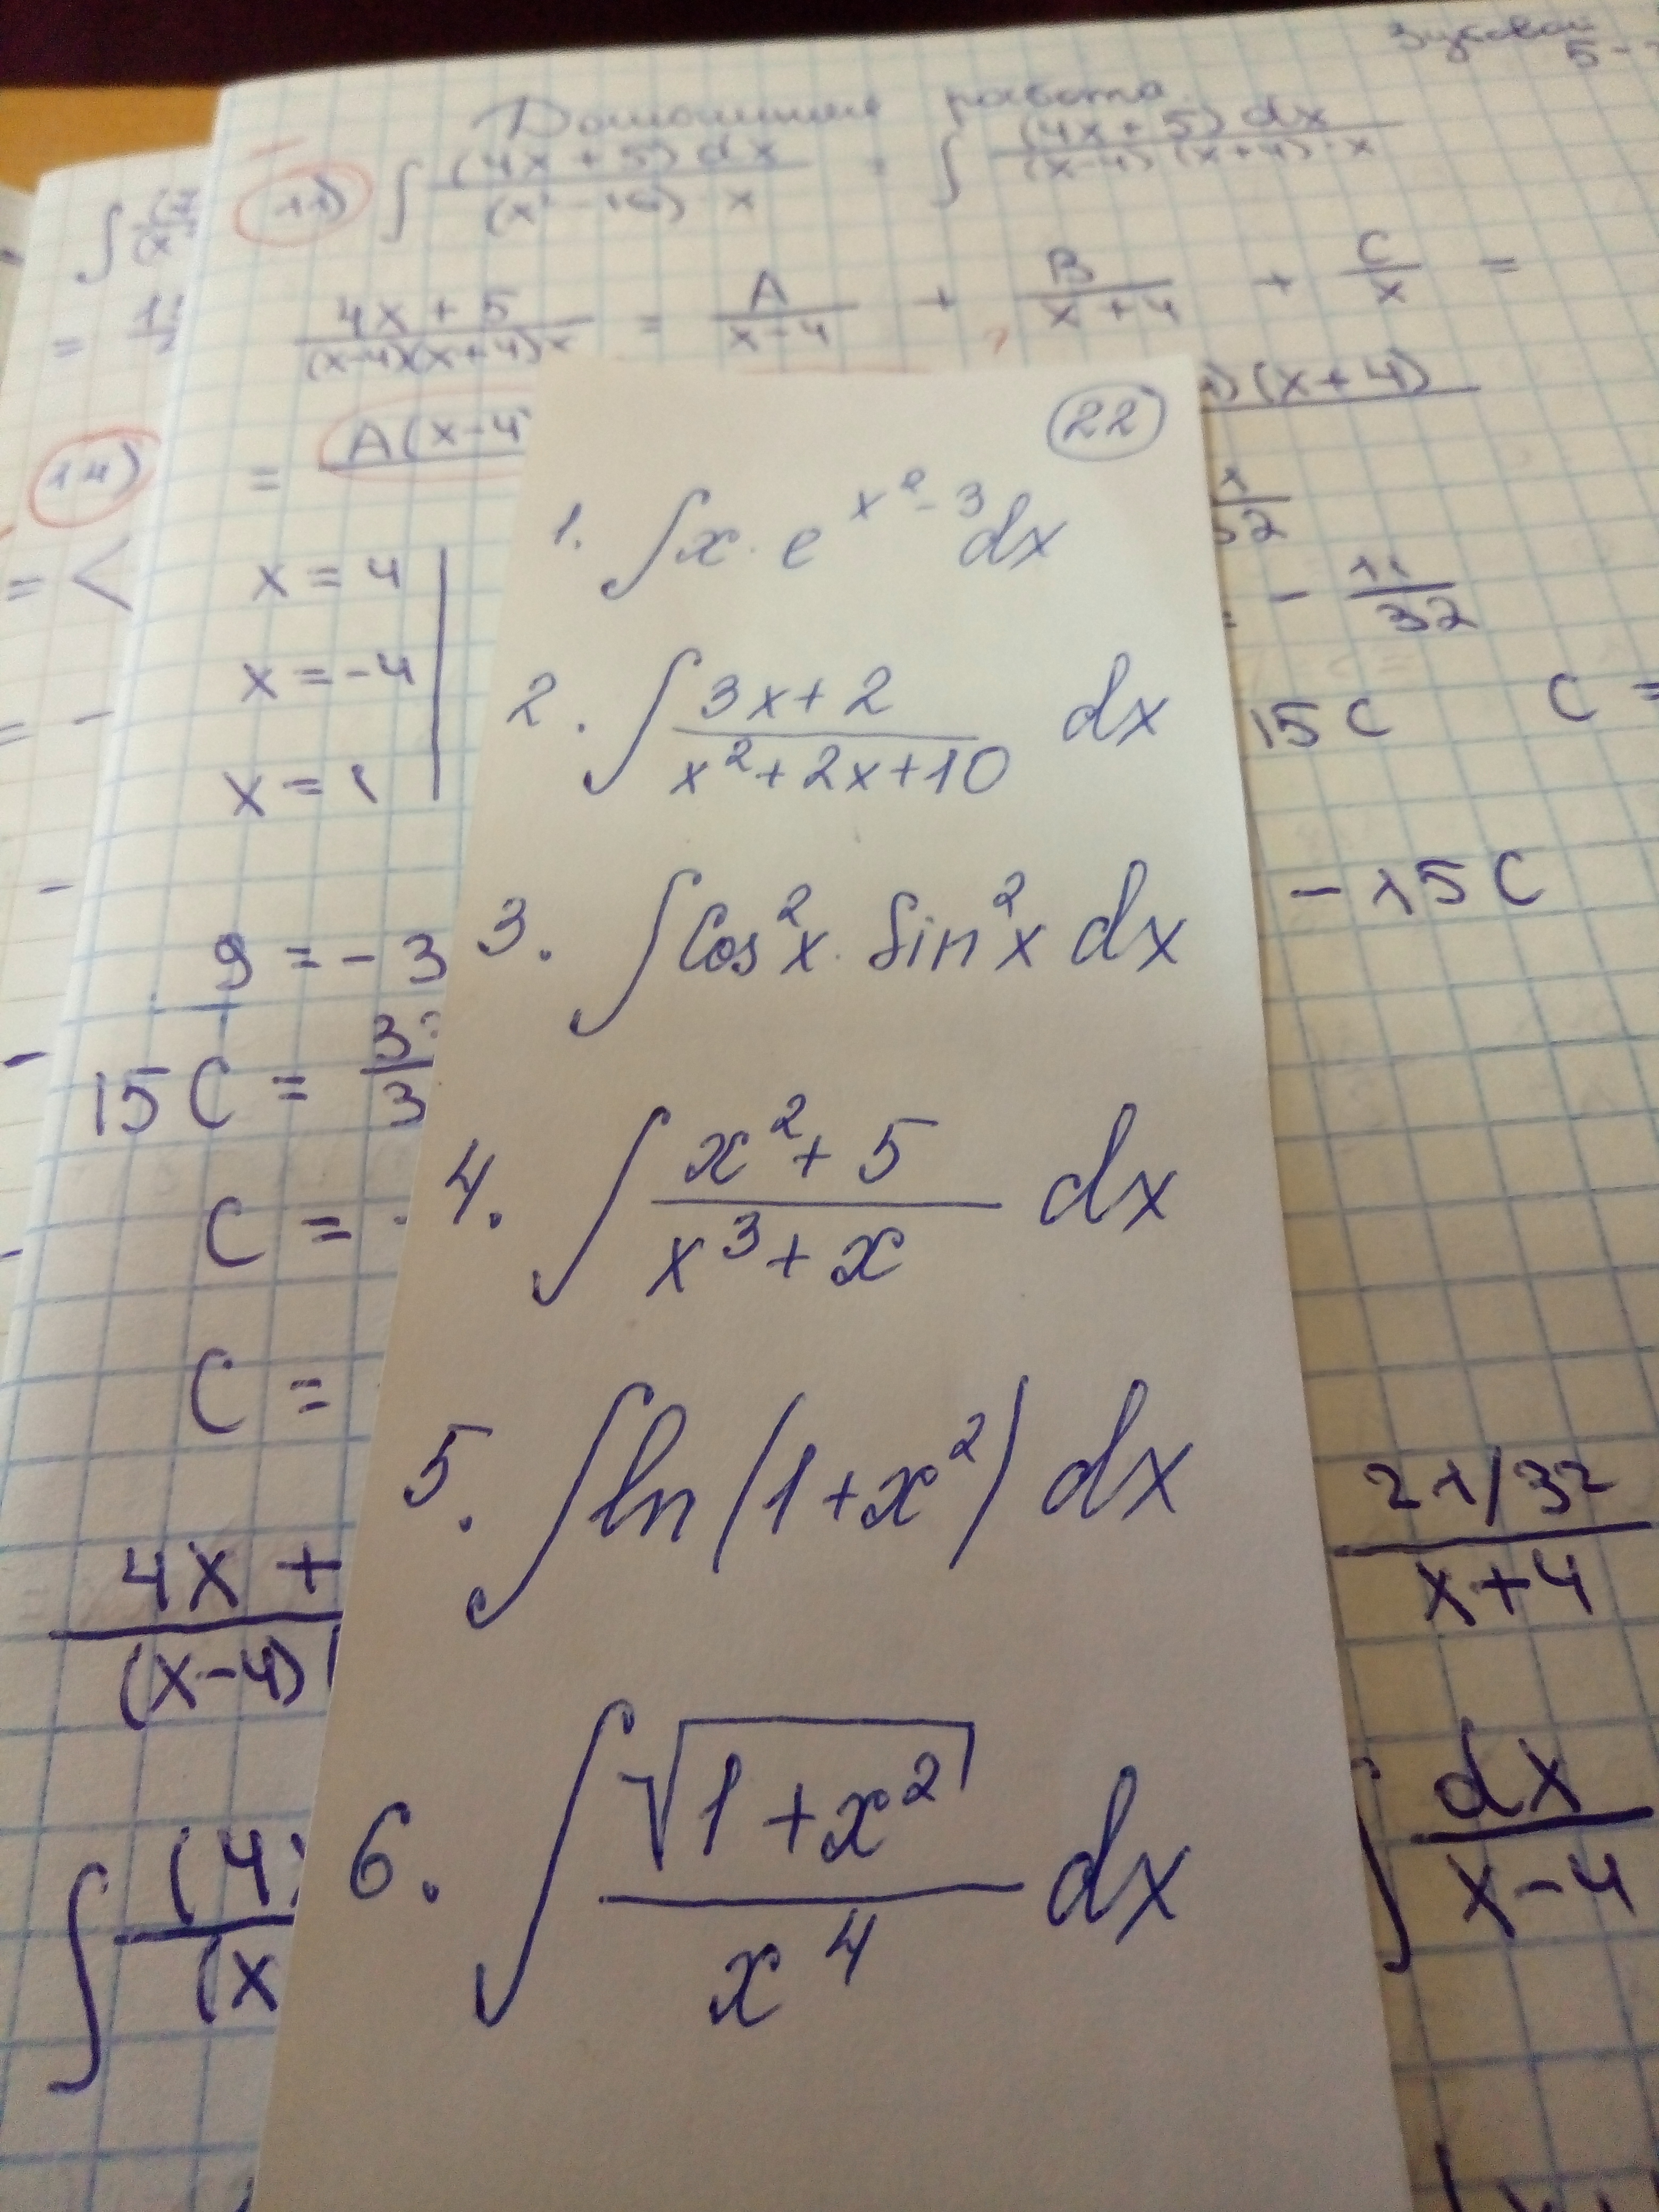 Домашняя работа
11) ∫ (4x+5)dx / (x²-16)·x = ∫ (4x+5)dx / (x-4)(x+4)·x
(4x+5) / (x-4)(x+4)x = A/(x-4) + B/(x+4) + C/x =
= A(x-4) (x+4)
14)
x=4
x=-4
- 11/32
15C C =
9 = -3 - 15C
15C = 3
C = -
C =
4x+ / (x-4) 21/32 / (x+4)
∫ (4x / (x ∫ dx / (x-4)
22
1. ∫x·e^(x²-3)dx
2. ∫ (3x+2)/(x²+2x+10) dx
3. ∫cos²x·sin²x dx
4. ∫ (x²+5)/(x³+x) dx
5. ∫ln(1+x²)dx
6. ∫ √(1+x²)/x⁴ dx